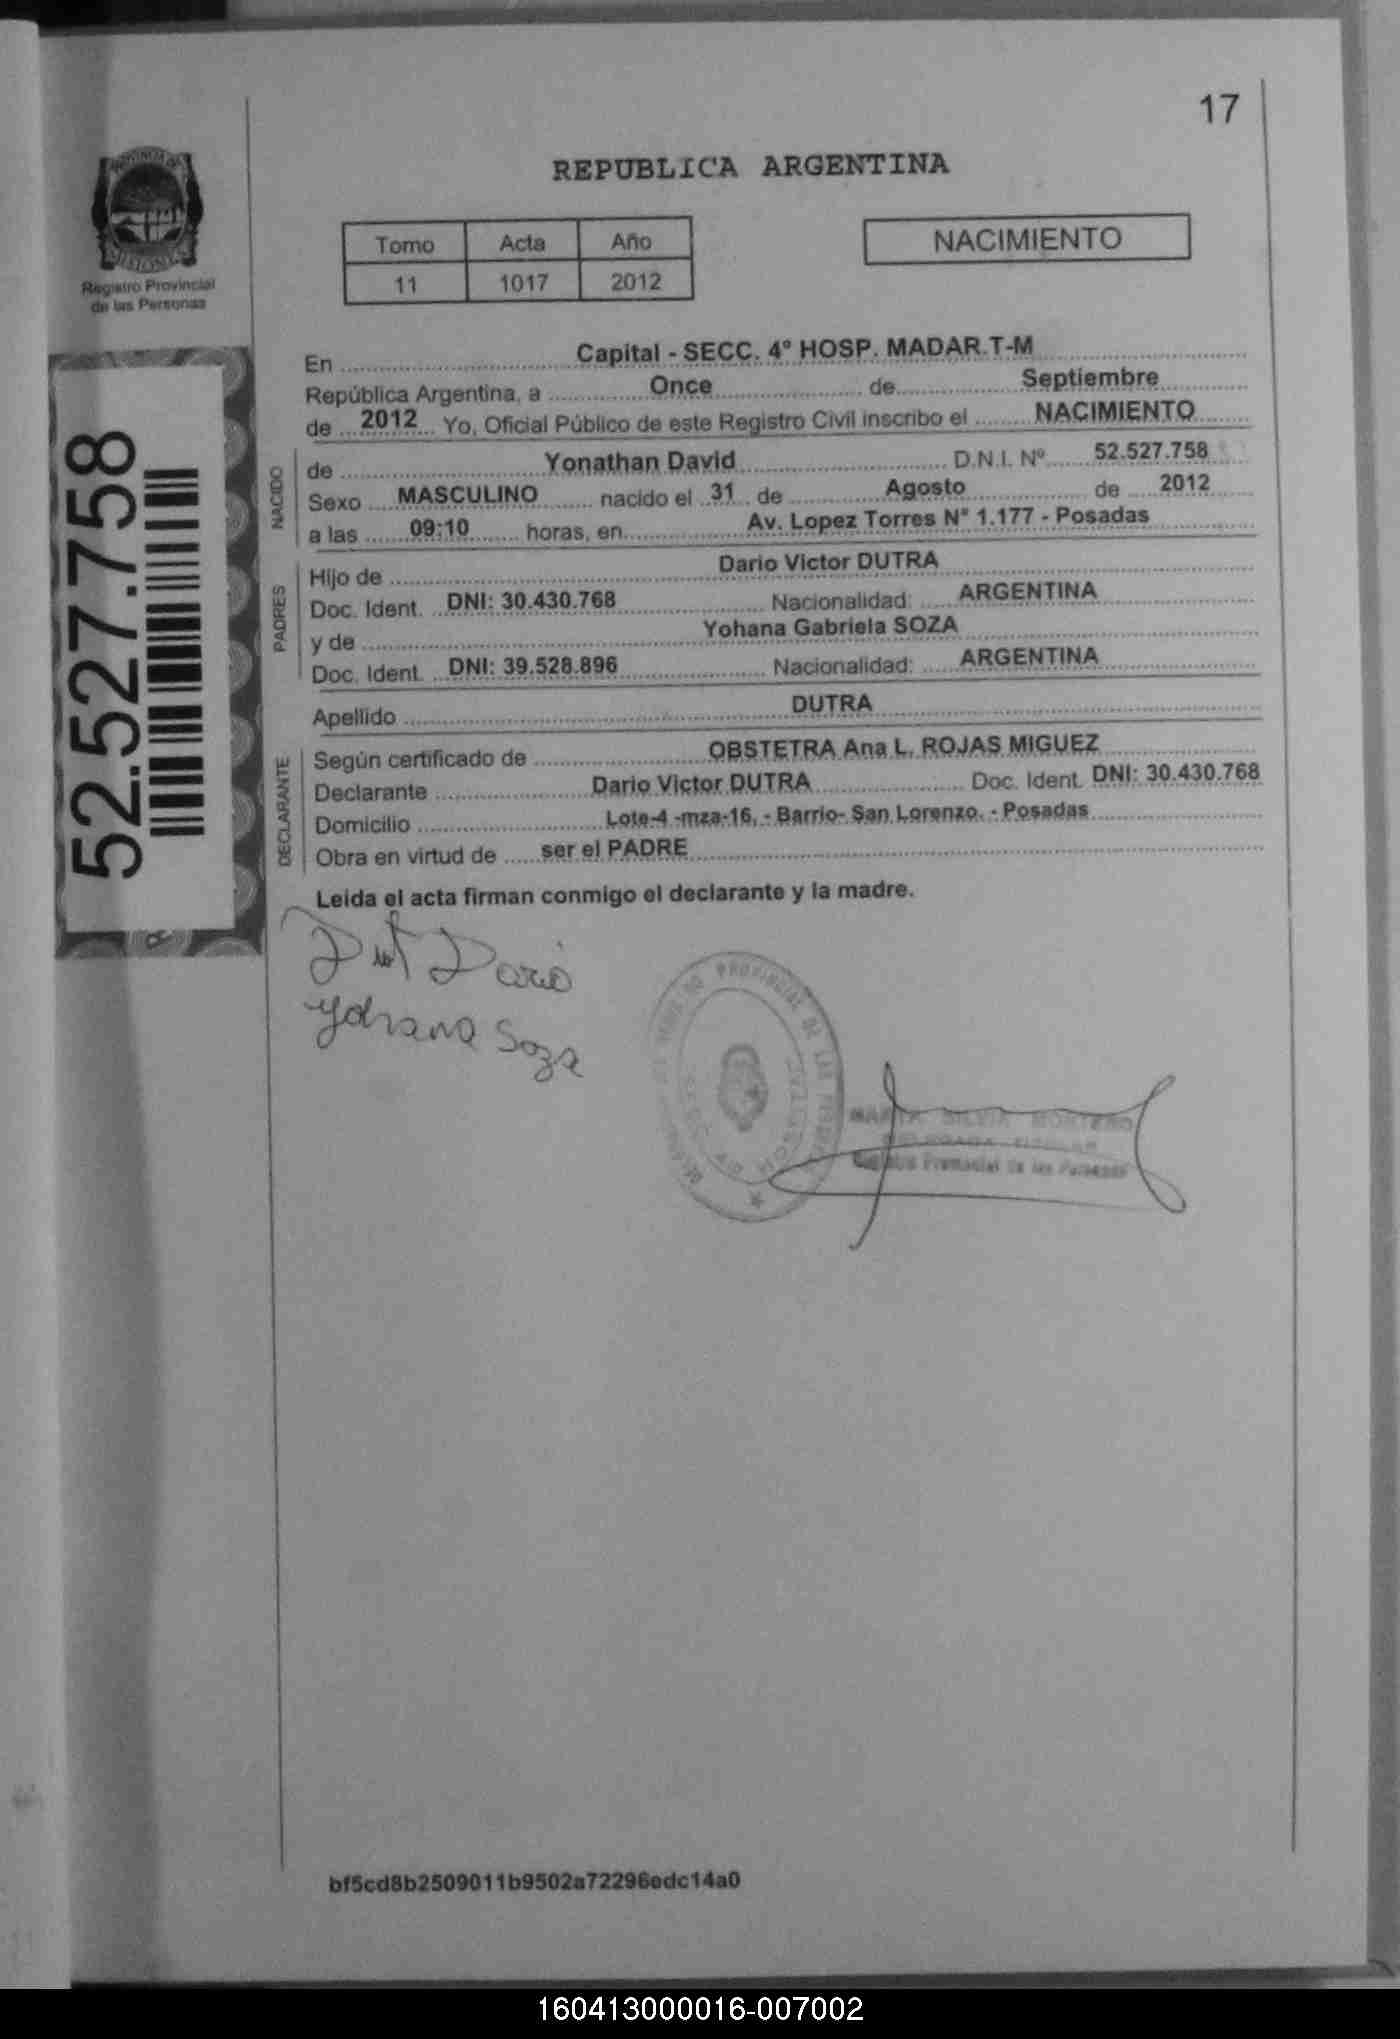 17
PROVINCIA DE
MISIONES
Registro Provincial
de las Personas
REPUBLICA ARGENTINA
Tomo Acta Año
11 1017 2012
NACIMIENTO
52.527.758
En Capital - SECC. 4º HOSP. MADAR.T-M
República Argentina, a Once de Septiembre
de 2012 Yo, Oficial Público de este Registro Civil inscribo el NACIMIENTO
NACIDO
de Yonathan David D.N.I. Nº 52.527.758
Sexo MASCULINO nacido el 31 de Agosto de 2012
a las 09:10 horas, en Av. Lopez Torres N° 1.177 - Posadas
PADRES
Hijo de Dario Victor DUTRA
Doc. Ident. DNI: 30.430.768 Nacionalidad: ARGENTINA
y de Yohana Gabriela SOZA
Doc. Ident. DNI: 39.528.896 Nacionalidad: ARGENTINA
Apellido DUTRA
DECLARANTE
Según certificado de OBSTETRA Ana L. ROJAS MIGUEZ
Declarante Dario Victor DUTRA Doc. Ident. DNI: 30.430.768
Domicilio Lote-4 -mza-16. - Barrio- San Lorenzo. - Posadas
Obra en virtud de ser el PADRE
Leida el acta firman conmigo el declarante y la madre.
Dario
Yohana Soza
PROVINCIAL DE LAS
MARTA SILVIA MONTERO
Registro Provincial de las Personas
bf5cd8b2509011b9502a72296edc14a0
160413000016-007002